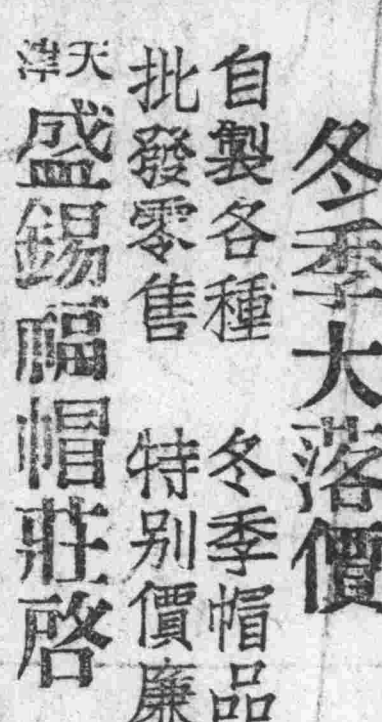 冬季大落價
自製各種 冬季帽品
批發零售 特别價廉
天津
盛錫幅帽莊啓